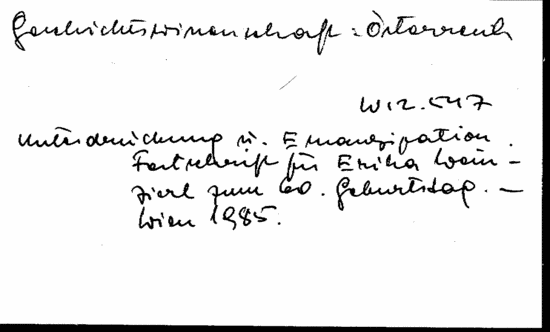 Geschichtswissenschaft: Österreich
W12.547
Unterdrückung u. Emanzipation.
Festschrift für Erika Wein-
zierl zum 60. Geburtstag. —
Wien 1985.